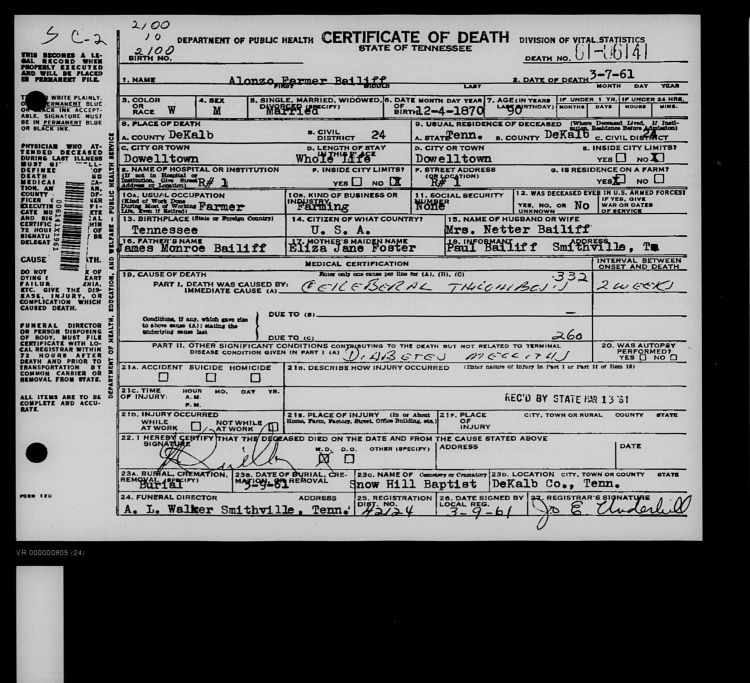 S C-2
2100
10
2100
DEPARTMENT OF PUBLIC HEALTH CERTIFICATE OF DEATH DIVISION OF VITAL STATISTICS
STATE OF TENNESSEE
BIRTH NO. DEATH NO. 61-06141
THIS BECOMES A LEGAL RECORD WHEN PROPERLY EXECUTED AND WILL BE PLACED IN PERMANENT FILE.
1. NAME Alonzo Farmer Bailiff 2. DATE OF DEATH 3-7-61
FIRST MIDDLE LAST MONTH DAY YEAR
3. COLOR OR RACE W 4. SEX M 5. SINGLE, MARRIED, WIDOWED, DIVORCED (SPECIFY) Married 6. DATE OF BIRTH MONTH DAY YEAR 12-4-1870 7. AGE (IN YEARS LAST BIRTHDAY) 90 IF UNDER 1 YR. MONTHS DAYS IF UNDER 24 HRS. HOURS MINS.
8. PLACE OF DEATH 9. USUAL RESIDENCE OF DECEASED (Where Deceased Lived, If Institution, Residence Before Admission)
A. COUNTY DeKalb B. CIVIL DISTRICT 24 A. STATE Tenn. B. COUNTY DeKalb C. CIVIL DISTRICT 24
C. CITY OR TOWN Dowelltown D. LENGTH OF STAY IN THIS PLACE Whole Life D. CITY OR TOWN Dowelltown E. INSIDE CITY LIMITS? YES NO X
E. NAME OF HOSPITAL OR INSTITUTION (If not in Hospital or Institution, Give Street Address or Location) R# 1 F. INSIDE CITY LIMITS? YES NO X F. STREET ADDRESS (OR LOCATION) R# 1 G. IS RESIDENCE ON A FARM? YES X NO
10A. USUAL OCCUPATION (Kind of Work Done During Most of Working Life, Even if Retired) Farmer 10B. KIND OF BUSINESS OR INDUSTRY Farming 11. SOCIAL SECURITY NUMBER None 12. WAS DECEASED EVER IN U.S. ARMED FORCES? YES, NO, OR UNKNOWN No IF YES, GIVE WAR OR DATES OF SERVICE
13. BIRTHPLACE (State or Foreign Country) Tennessee 14. CITIZEN OF WHAT COUNTRY? U. S. A. 15. NAME OF HUSBAND OR WIFE Mrs. Netter Bailiff
16. FATHER'S NAME James Monroe Bailiff 17. MOTHER'S MAIDEN NAME Eliza Jane Foster 18. INFORMANT ADDRESS Paul Bailiff Smithville, Te
MEDICAL CERTIFICATION INTERVAL BETWEEN ONSET AND DEATH
19. CAUSE OF DEATH Enter only one cause per line for (A), (B), (C) 332
PART I. DEATH WAS CAUSED BY: IMMEDIATE CAUSE (A) CEREBERAL THROMBOSIS 2 WEEKS
Conditions, if any, which gave rise to above cause (A): stating the underlying cause last
DUE TO (B)
DUE TO (C) 260
PART II. OTHER SIGNIFICANT CONDITIONS CONTRIBUTING TO THE DEATH BUT NOT RELATED TO TERMINAL DISEASE CONDITION GIVEN IN PART I (A) DIABETES MELLITUS 20. WAS AUTOPSY PERFORMED? YES NO
21A. ACCIDENT SUICIDE HOMICIDE 21B. DESCRIBE HOW INJURY OCCURRED (Enter nature of Injury in Part I or Part II of Item 19)
21C. TIME OF INJURY: HOUR A.M. P.M. MO. DAY YR. REC'D BY STATE MAR 13 '61
21D. INJURY OCCURRED WHILE AT WORK NOT WHILE AT WORK 21E. PLACE OF INJURY (In or About Home, Farm, Factory, Street, Office Building, etc.) 21F. PLACE OF INJURY CITY, TOWN OR RURAL COUNTY STATE
22. I HEREBY CERTIFY THAT THE DECEASED DIED ON THE DATE AND FROM THE CAUSE STATED ABOVE
SIGNATURE M.D. X D.O. OTHER (SPECIFY) ADDRESS DATE
23A. BURIAL, CREMATION, REMOVAL (SPECIFY) Burial 23B. DATE OF BURIAL, CREMATION, OR REMOVAL 3-9-61 23C. NAME OF Cemetery or Crematory Snow Hill Baptist 23D. LOCATION CITY, TOWN OR COUNTY STATE DeKalb Co., Tenn.
24. FUNERAL DIRECTOR ADDRESS A. L. Walker Smithville, Tenn. 25. REGISTRATION DIST. NO. 42124 26. DATE SIGNED BY LOCAL REG. 3-9-61 27. REGISTRAR'S SIGNATURE Jo E. Underhill
CAUSE
FUNERAL DIRECTOR OR PERSON DISPOSING OF BODY, MUST FILE CERTIFICATE WITH LOCAL REGISTRAR WITHIN 72 HOURS AFTER DEATH AND PRIOR TO TRANSPORTATION BY COMMON CARRIER OR REMOVAL FROM STATE.
ALL ITEMS ARE TO BE COMPLETE AND ACCURATE.
FORM 120
VR 000000805 (24)